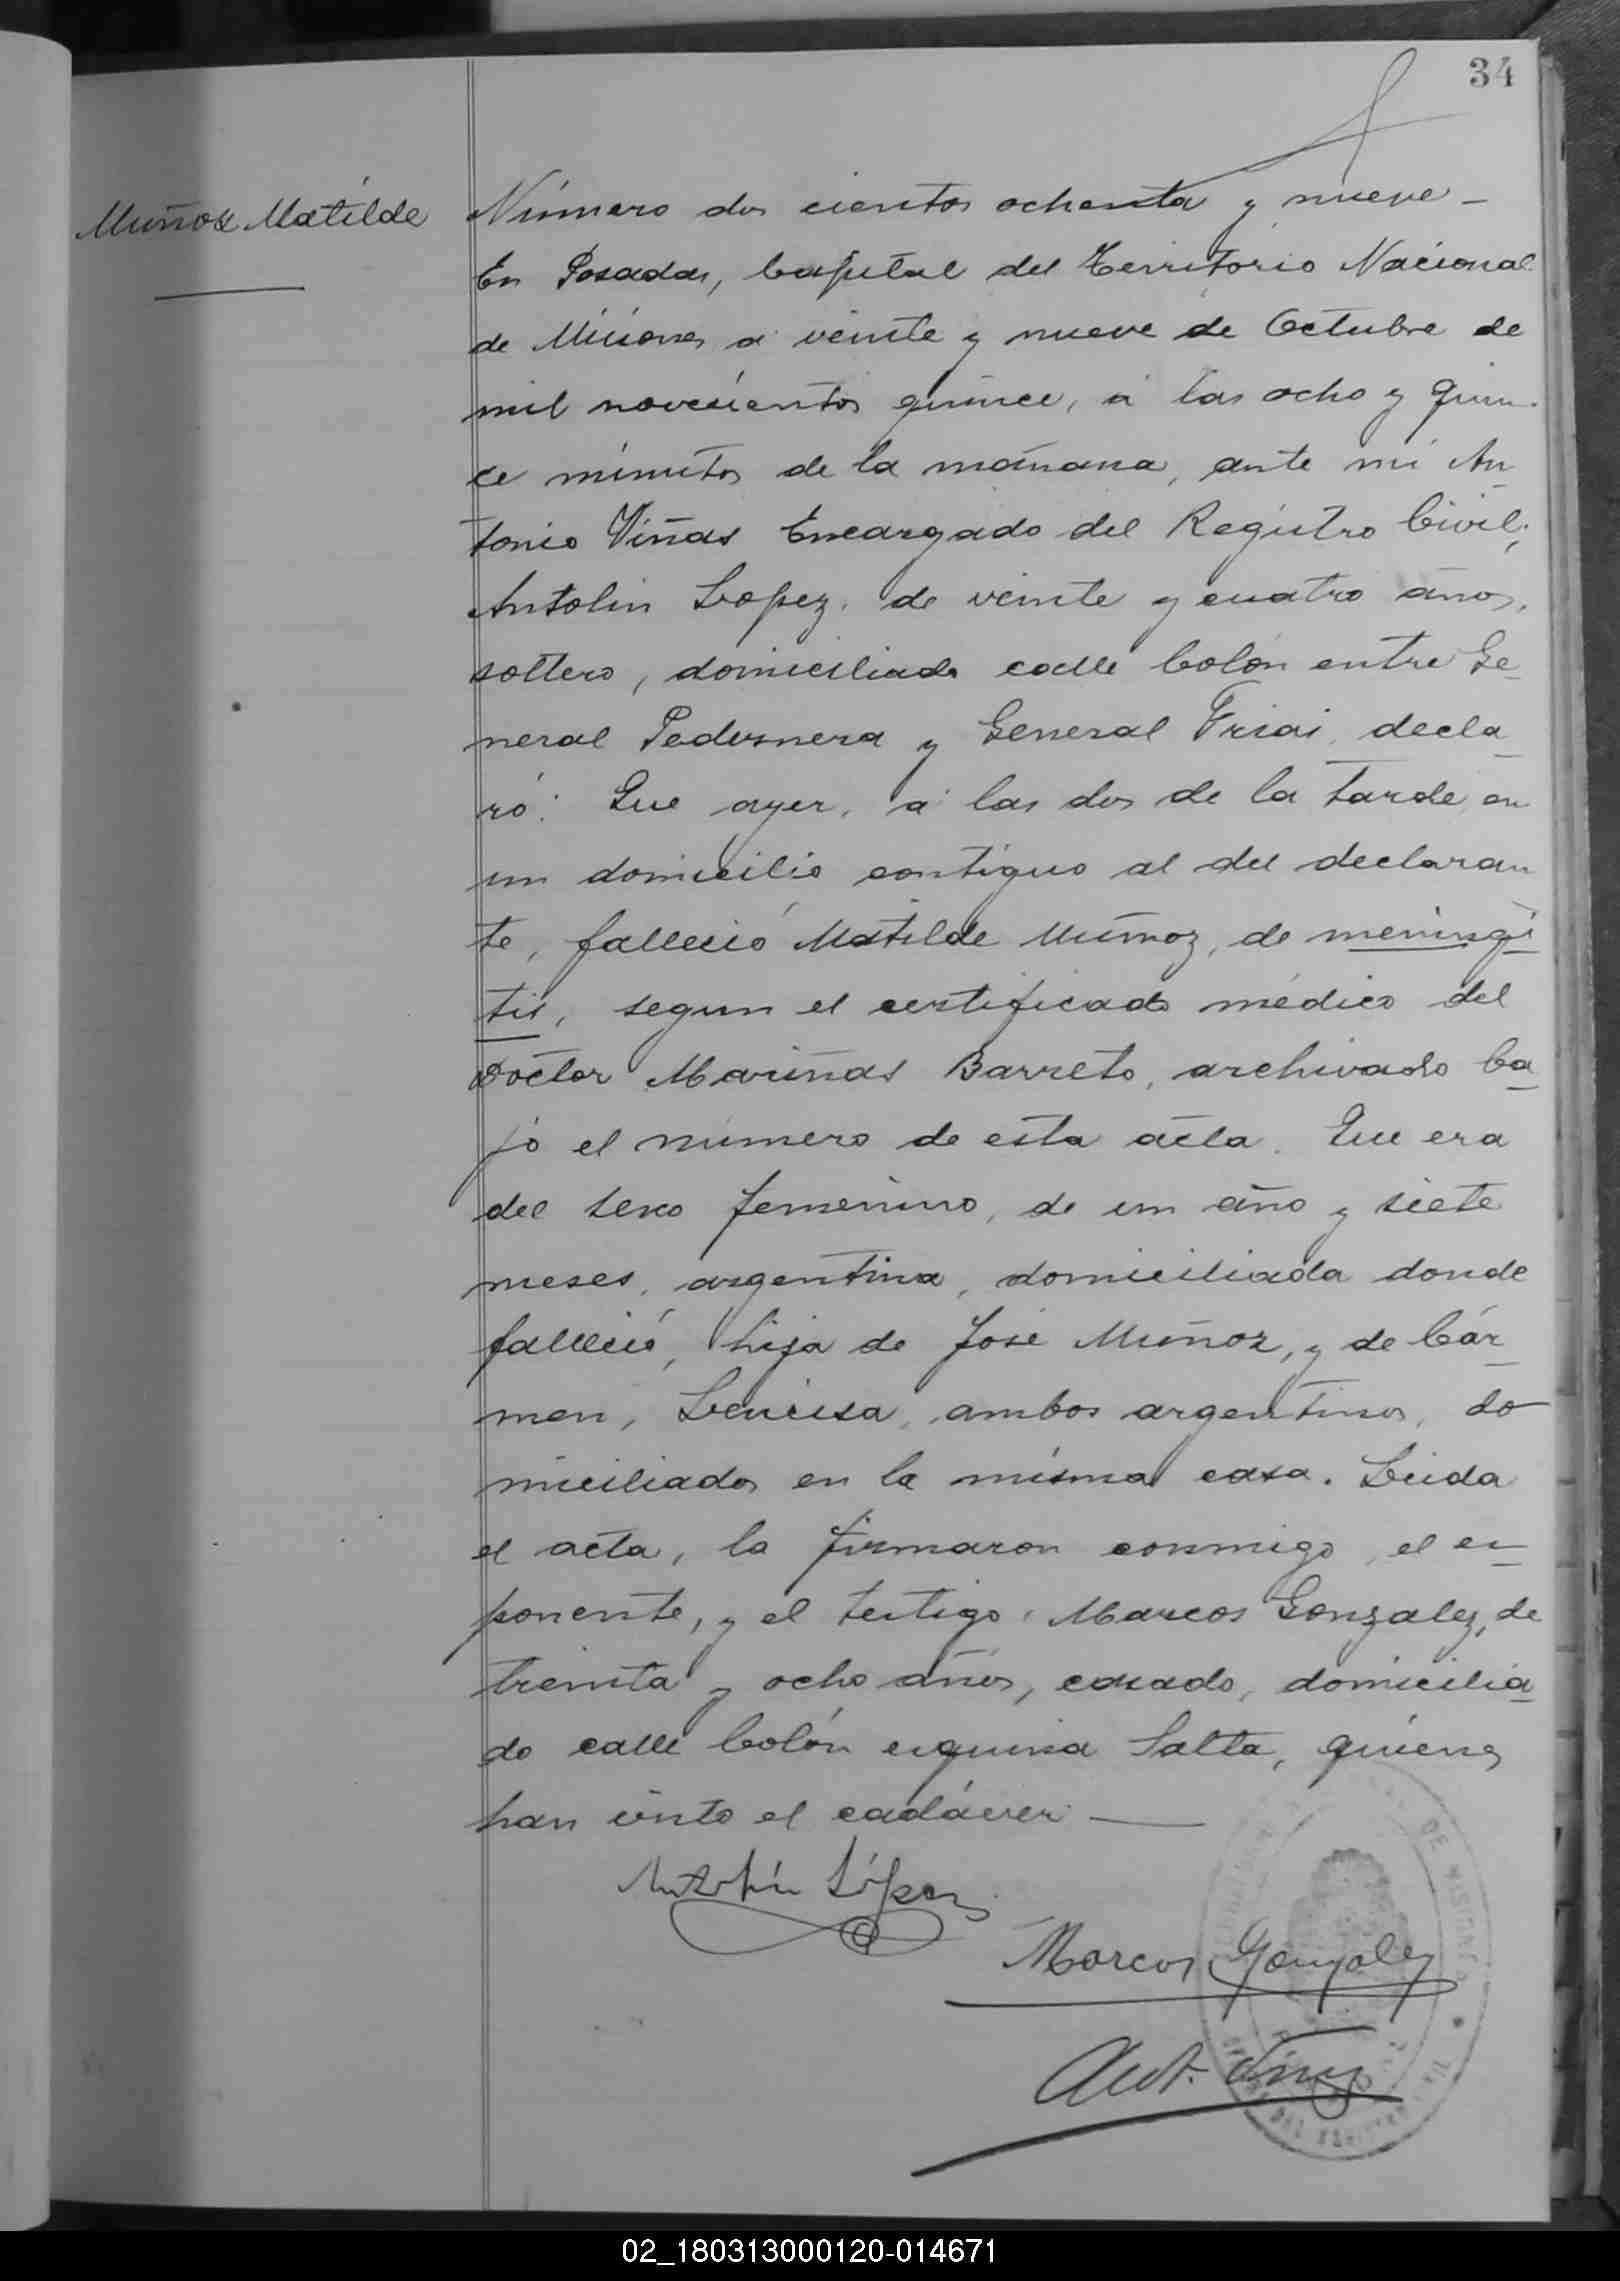 34
Muñoz Matilde
Número dos cientos ochenta y nueve —
En Posadas, Capital del Territorio Nacional
de Misiones a veinte y nueve de Octubre de
mil novecientos quince, a las ocho y quin-
ce minutos de la mañana, ante mi An
tonio Viñas Encargado del Registro Civil;
Antolin Lopez, de veinte y cuatro años,
soltero, domiciliado calle Colón entre Ge
neral Pedernera y General Frias, decla
ró: Que ayer, a las dos de la tarde, en
un domicilio contiguo al del declaran
te, falleció Matilde Muñoz, de meningi
tis, segun el certificado médico del
Doctor Mariñas Barreto, archivado ba
jo el número de esta acta. Que era
del sexo femenino, de un año y siete
meses, argentina, domiciliada donde
falleció, hija de José Muñoz, y de Cár
men, ambos argentinos, do
miciliados en la misma casa. Leida
el acta, la firmaron conmigo, el ex
ponente, y el testigo, Marcos Gonzalez, de
treinta y ocho años, casado, domicilia
do calle Colón esquina Salta, quienes
han visto el cadáver —
Antolín López
Marcos Gonzalez
Ant. Viñas
DE MISIONES
02_180313000120-014671